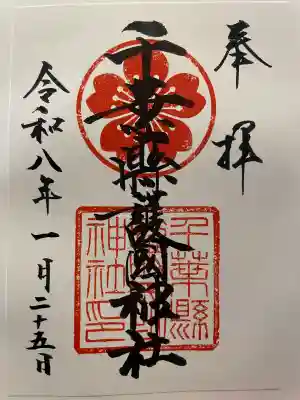 奉拝
千葉縣護國神社
令和八年一月二十五日
千葉縣
護國
神社印